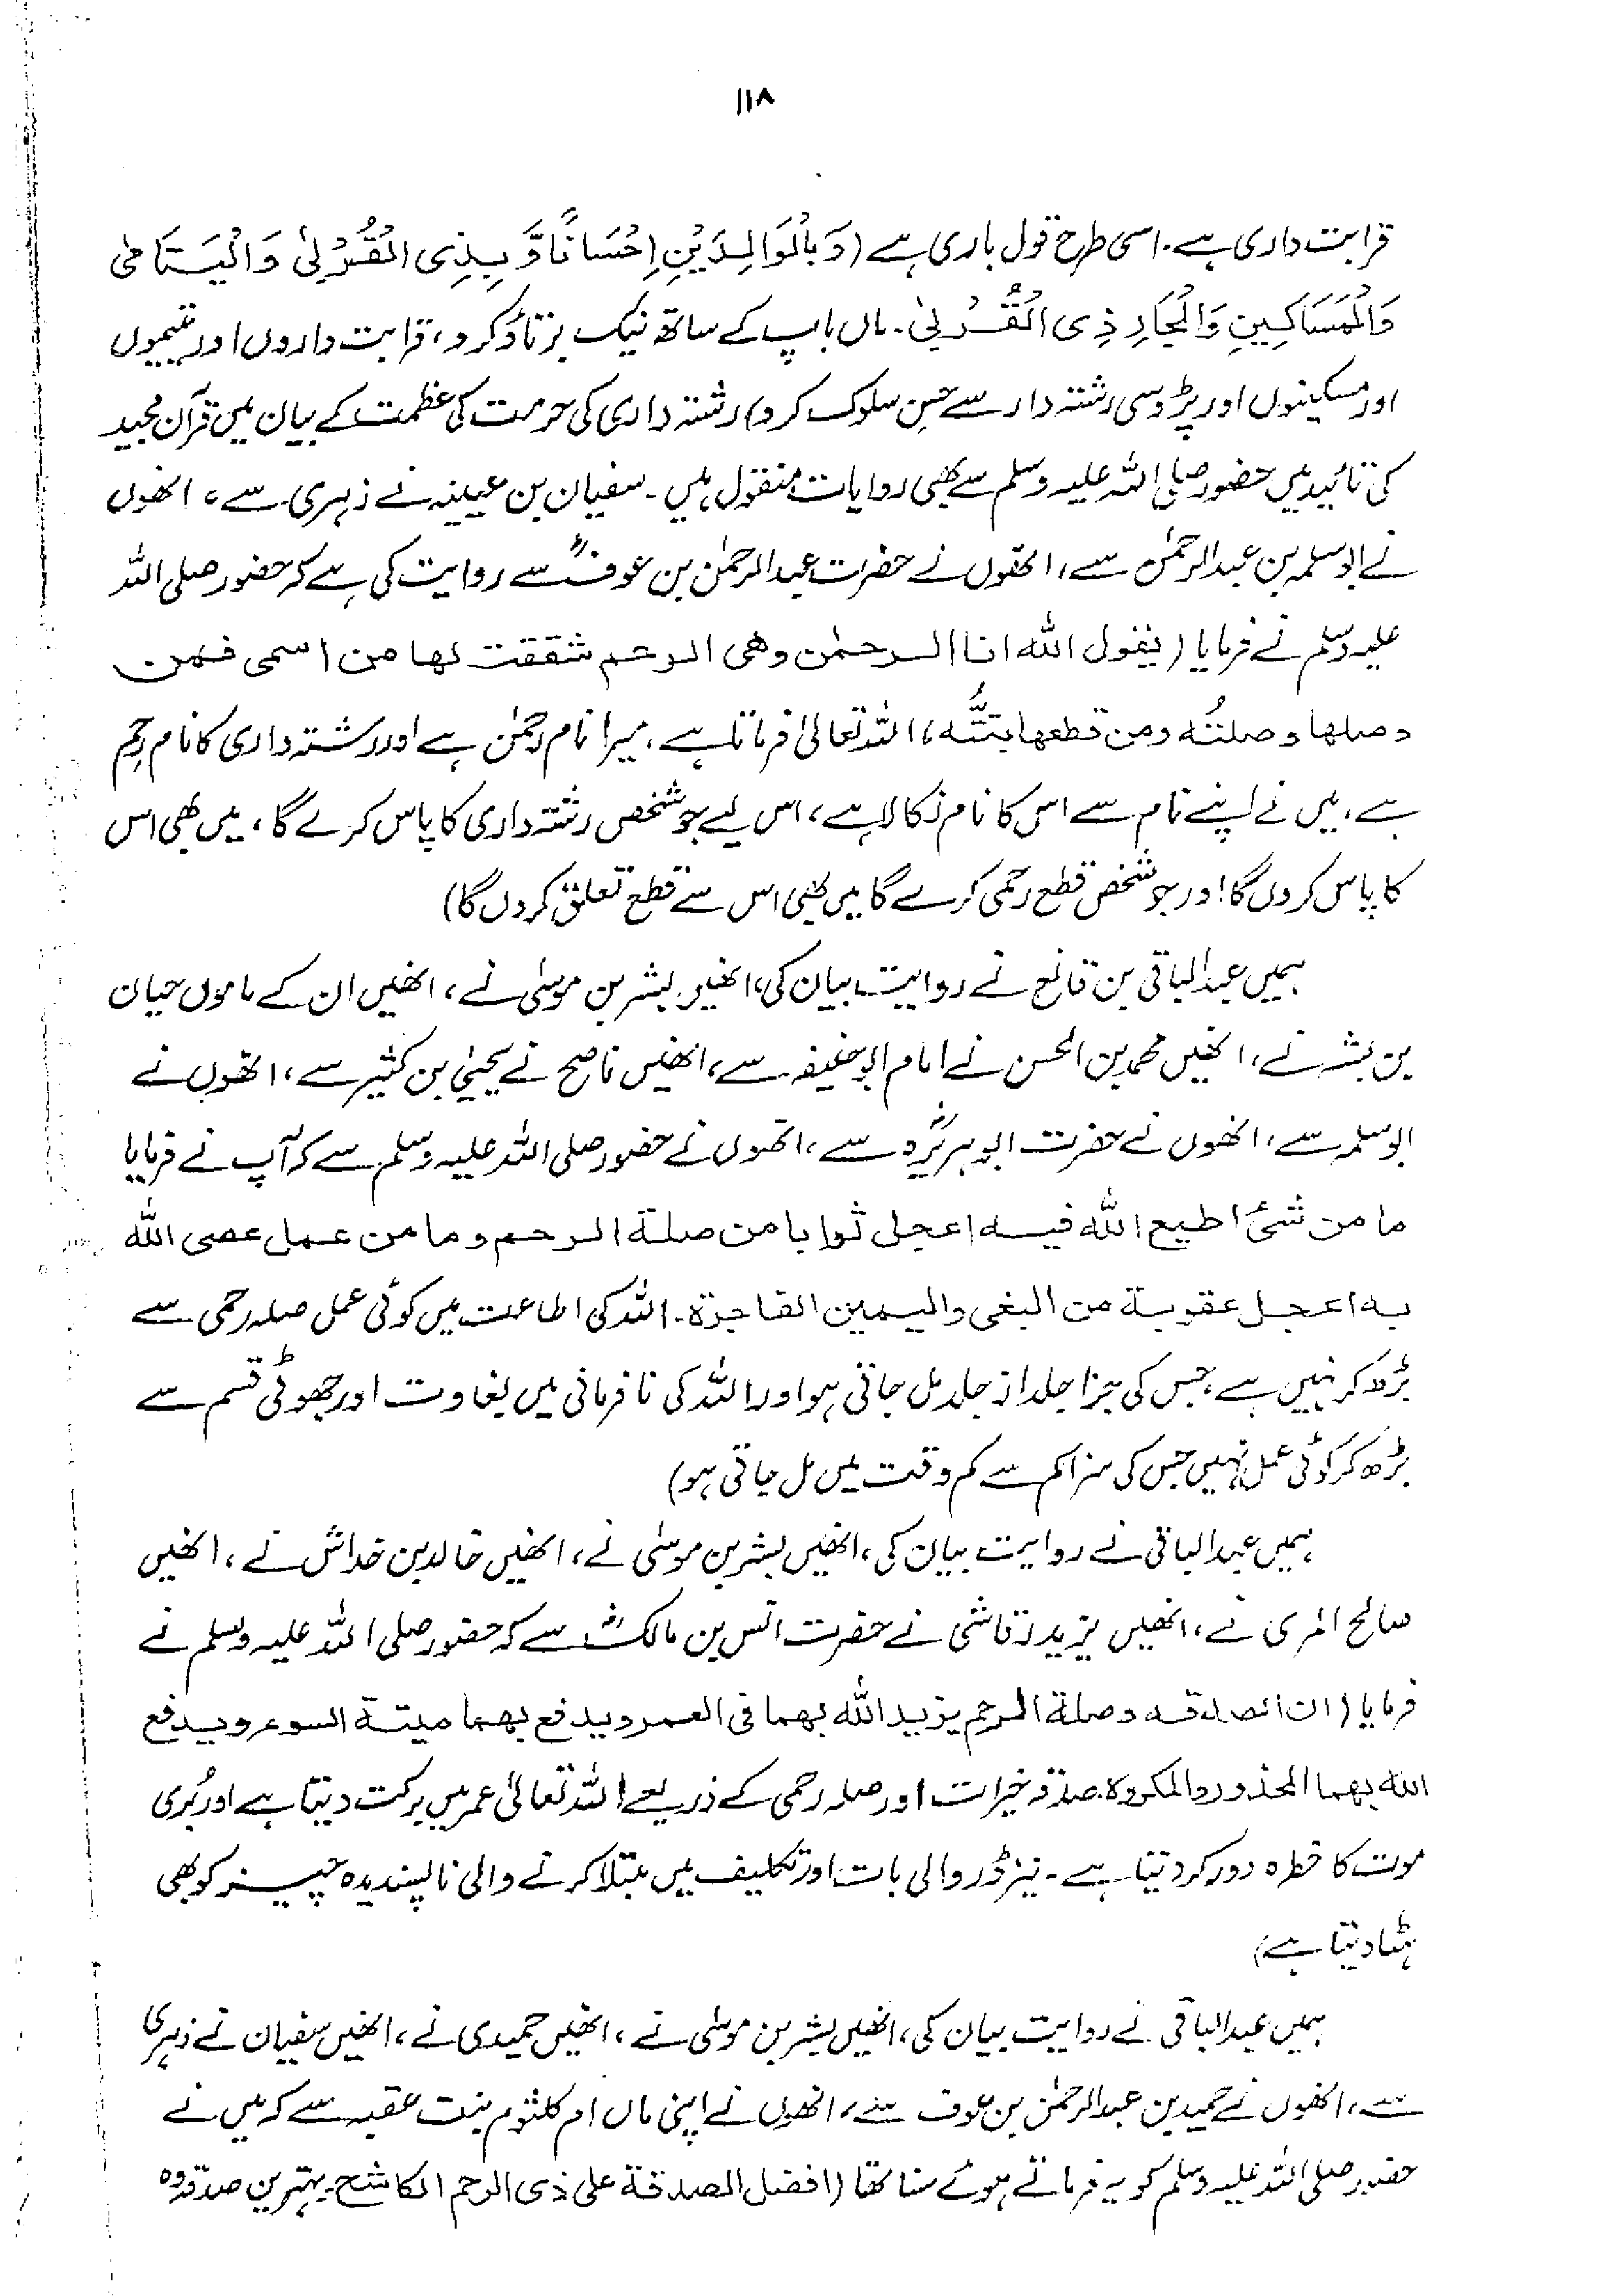 ۱۱۸
قرابت داری ہے۔ اسی طرح قول باری ہے (وَبِالْوَالِدَيْنِ اِحْسَانًا وَّبِذِی الْقُرْبٰی وَالْيَتَامٰی
وَالْمَسَاكِينِ وَالْجَارِ ذِی الْقُرْبٰی۔ ماں باپ کے ساتھ نیک برتاؤ کرو، قرابت داروں اور یتیموں
اور مسکینوں اور پڑوسی رشتہ دار سے حسن سلوک کرو) رشتہ داری کی حرمت کی عظمت کے بیان میں قرآن مجید
کی تائید میں حضور صلی اللہ علیہ وسلم سے بھی روایات منقول ہیں۔ سفیان بن عیینہ نے زہری سے، انھوں
نے ابوسلمہ بن عبدالرحمٰن سے، انھوں نے حضرت عبدالرحمٰن بن عوفؓ سے روایت کی ہے کہ حضور صلی اللہ
علیہ وسلم نے فرمایا (یقول الله انا الرحمٰن وھی الرحم شققت لها من اسمی فمن
وصلها وصلتُه ومن قطعها بتتُّه، اللہ تعالیٰ فرماتا ہے، میرا نام رحمٰن ہے اور رشتہ داری کا نام رحم
ہے، میں نے اپنے نام سے اس کا نام نکالا ہے، اس لیے جو شخص رشتہ داری کا پاس کرے گا، میں بھی اس
کا پاس کروں گا اور جو شخص قطع رحمی کرے گا میں بھی اس سے قطع تعلق کروں گا)
ہمیں عبدالباقی بن قانع نے روایت بیان کی، انھیں بشر بن موسیٰ نے، انھیں ان کے ماموں حیان
بن بشر نے، انھیں محمد بن الحسن نے امام ابوحنیفہ سے، انھیں ناصح نے یحییٰ بن کثیر سے، انھوں نے
ابوسلمہ سے، انھوں نے حضرت ابوہریرہؓ سے، انھوں نے حضور صلی اللہ علیہ وسلم سے کہ آپ نے فرمایا
ما من شئ اطیع الله فیه اعجل ثوابا من صلة الرحم وما من عمل عصی الله
به اعجل عقوبة من البغی والیمین الفاجرة۔ اللہ کی اطاعت میں کوئی عمل صلہ رحمی سے
بڑھ کر نہیں ہے، جس کی جزا جلد از جلد مل جاتی ہو اور اللہ کی نافرمانی میں بغاوت اور جھوٹی قسم سے
بڑھ کر کوئی عمل نہیں جس کی سزا کم سے کم وقت میں مل جاتی ہو)
ہمیں عبدالباقی نے روایت بیان کی، انھیں بشر بن موسیٰ نے، انھیں خالد بن خداش نے، انھیں
صالح المری نے، انھیں یزید رقاشی نے حضرت انس بن مالکؓ سے کہ حضور صلی اللہ علیہ وسلم نے
فرمایا (ان الصدقه وصلة الرحم یزید الله بهما فی العمر ویدفع بهما میتة السوء ویدفع
الله بهما المحذور والمکروہ۔ صدقہ خیرات اور صلہ رحمی کے ذریعے اللہ تعالیٰ عمر میں برکت دیتا ہے اور بُری
موت کا خطرہ دور کر دیتا ہے۔ نیز ڈر والی بات اور تکلیف میں مبتلا کرنے والی ناپسندیدہ چیز کو بھی
ہٹا دیتا ہے)
ہمیں عبدالباقی نے روایت بیان کی، انھیں بشر بن موسیٰ نے، انھیں حمیدی نے، انھیں سفیان نے زہری
سے، انھوں نے حمید بن عبدالرحمٰن بن عوف سے، انھوں نے اپنی ماں ام کلثوم بنت عقبہ سے کہ میں نے
حضور صلی اللہ علیہ وسلم کو یہ فرماتے ہوئے سنا تھا (افضل الصدقة علی ذی الرحم الکاشح۔ بہترین صدقہ وہ